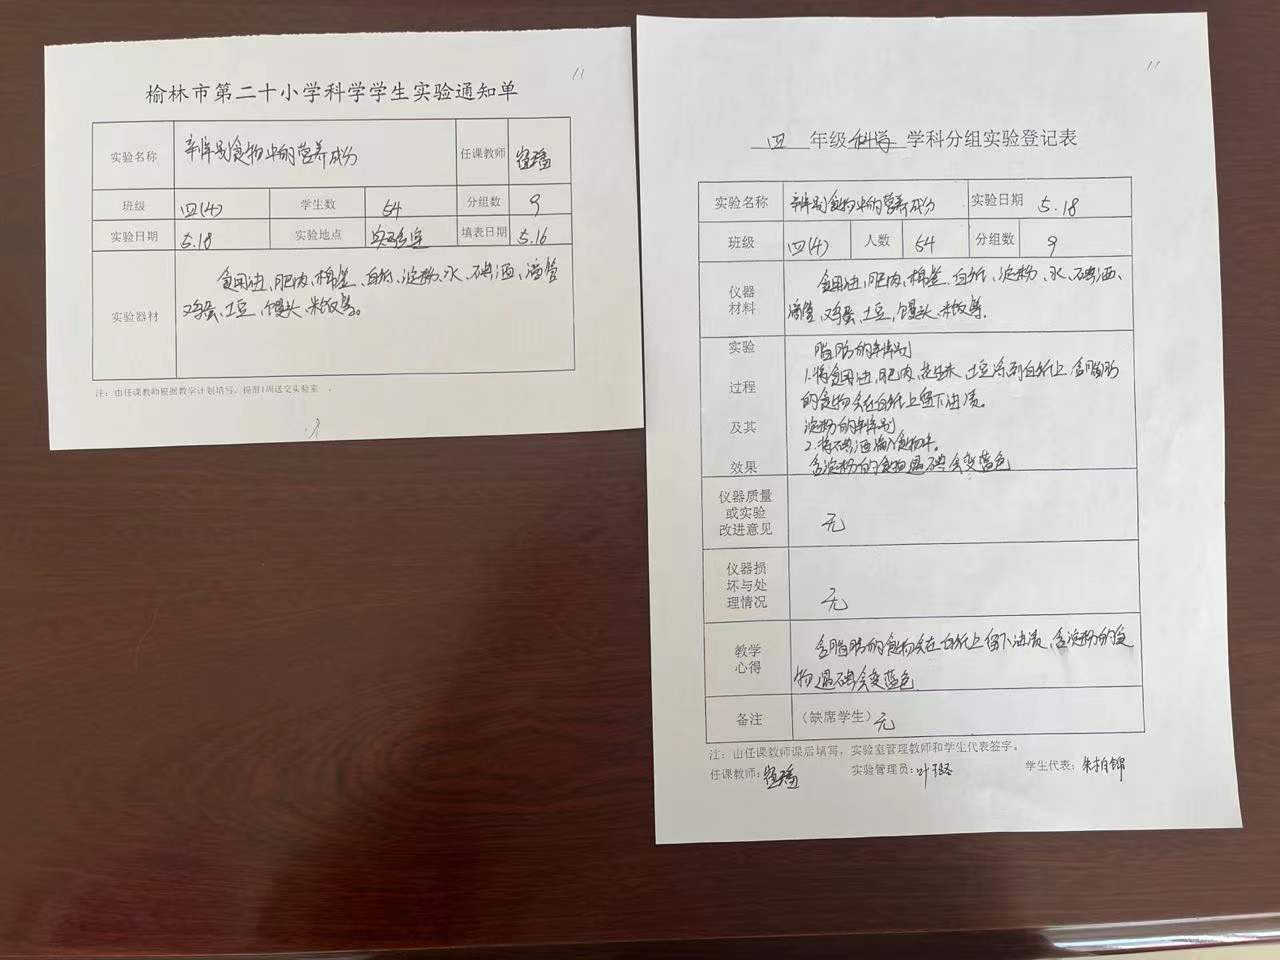 11
榆林市第二十小学科学学生实验通知单
实验名称 辨别食物中的营养成分 任课教师
班级 四(4) 学生数 54 分组数 9
实验日期 5.18 实验地点 实验室 填表日期 5.16
实验器材 食用油、肥肉、棉签、白纸、淀粉、水、碘酒、滴管
鸡蛋、土豆、馒头、米饭等。
注：由任课教师根据教学计划填写，提前1周送交实验室 .
11
四 年级 科学 学科分组实验登记表
实验名称 辨别食物中的营养成分 实验日期 5.18
班级 四(4) 人数 54 分组数 9
仪器
材料
食用油、肥肉、棉签、白纸、淀粉、水、碘酒、
滴管、鸡蛋、土豆、馒头、米饭等.
实验
过程
及其
效果
脂肪的辨别
1.将食用油、肥肉、花生米、土豆涂到白纸上 含脂肪
的食物会在白纸上留下油渍。
淀粉的辨别
2.将碘酒滴入食物中。
含淀粉的食物遇碘会变蓝色
仪器质量
或实验
改进意见
无
仪器损
坏与处
理情况
无
教学
心得
含脂肪的食物会在白纸上留下油渍、含淀粉的食
物遇碘会变蓝色
备注 （缺席学生）无
注：由任课教师课后填写，实验室管理教师和学生代表签字。
任课教师： 实验管理员：叶 学生代表：朱柏锦